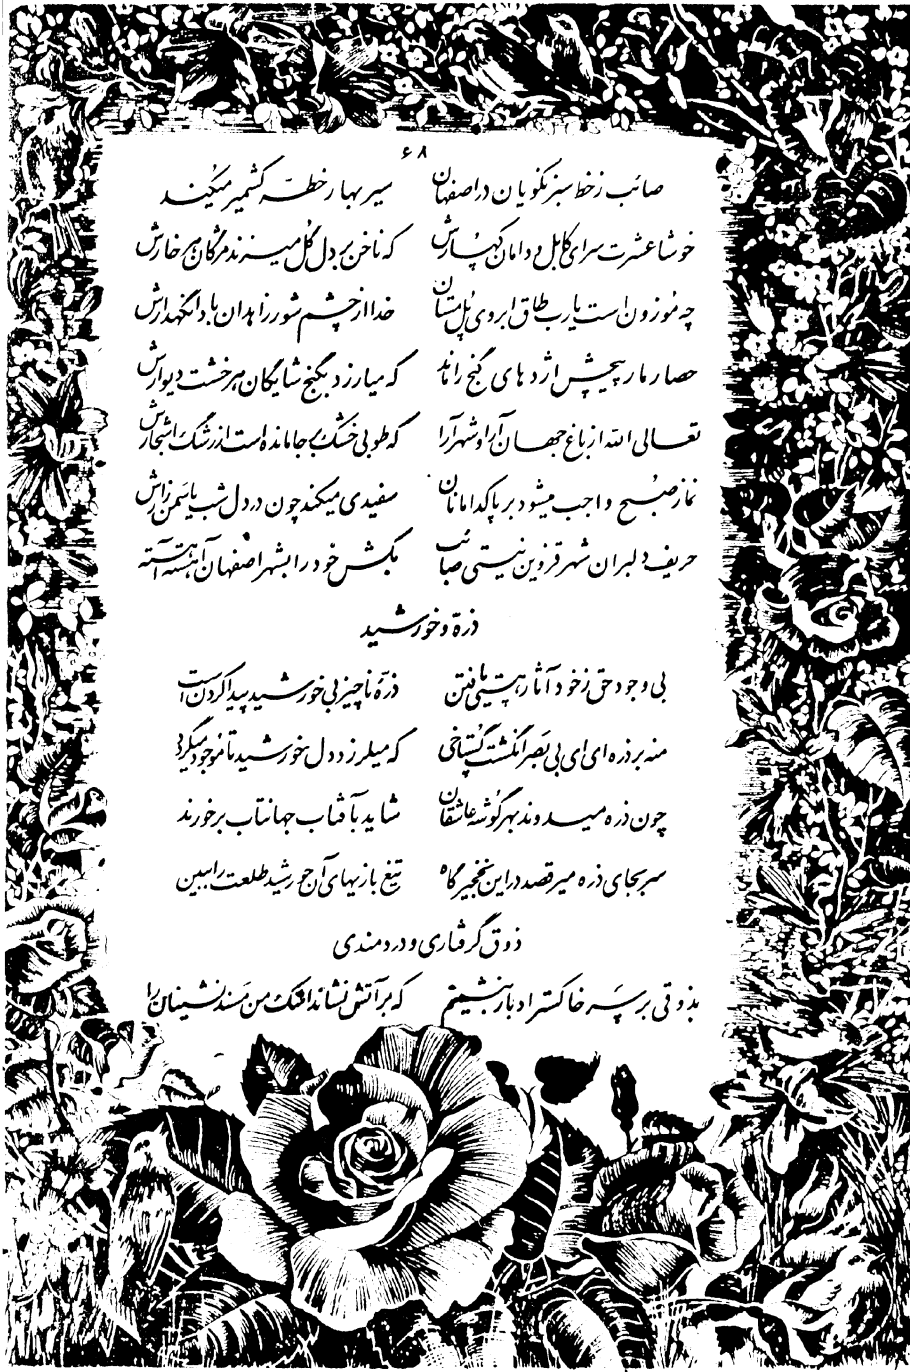 ۶۸
صائب ز خط سبز نکویان در اصفهان سیر بهار خطهٔ کشمیر میکند
خوشا عشرت سرای کابل و دامان کهسارش که ناخن بر دل گل میزند مژگان هر خارش
چه موزون است یارب طاق ابروی پل مستان خدا از چشم شور زاهدان بادا نگهدارش
حصار مار پیچش اژدهای گنج را ماند که میارزد بگنج شایگان هر خشت دیوارش
تعالی الله از باغ جهان آرا و شهر آرا که طوبی خشک بر جا مانده است از رشک اشجارش
نماز صبح واجب میشود بر پاکدامانان سفیدی میکند چون در دل شب یاسمن زارش
حریف دلبران شهر قزوین نیستی صائب بکش خود را بشهر اصفهان آهسته آهسته
ذرة و خورشید
بی وجود حق ز خود آثار هستی یافتن ذرّه ناچیز بی خورشید پیدا کردن است
منه بر ذره ای ای بی بصر انگشت گستاخی که میلرزد دل خورشید تا موجود میگردد
چون ذره میدوند بهر گوشه عاشقان شاید بآفتاب جهانتاب برخورند
سر بجای ذره میرقصد در این نخجیرگاه تیغ بازیهای آن خورشید طلعت را ببین
ذوق گرفتاری و دردمندی
بذوقی بر سر خاکستر ادبار بنشینم که بر آتش نشاند اشک من مسند نشینان را